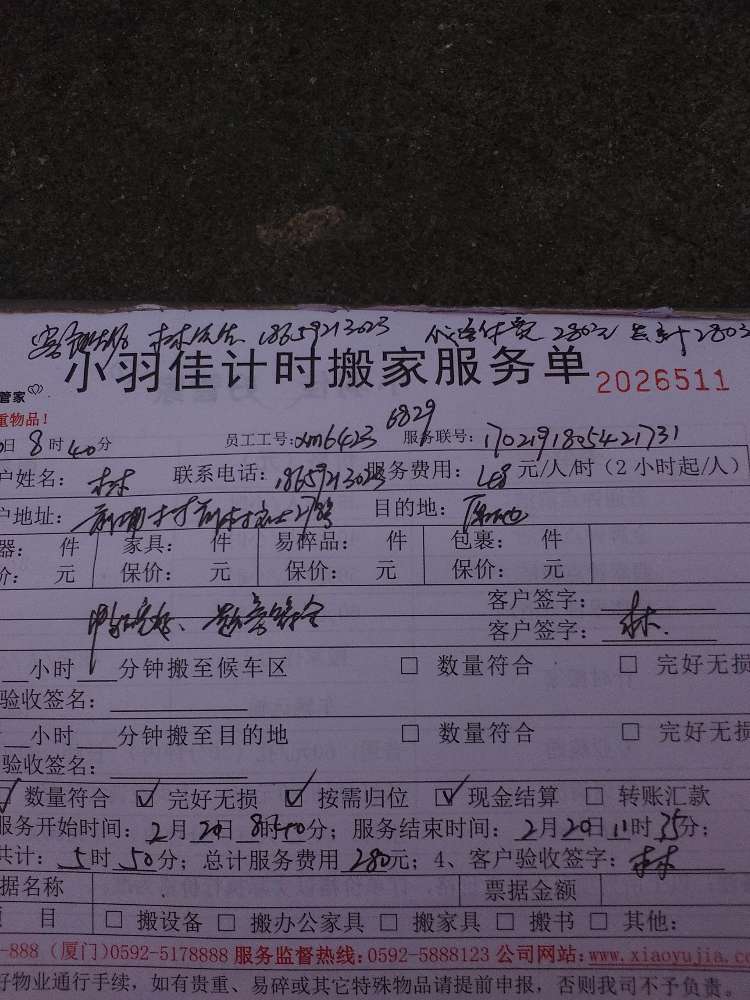 林先生 18659213023 280元 总计280元
小羽佳计时搬家服务单 2026511
管家
重物品!
日8时40分 员工工号:xm6423 6829 服务联号:170219180542 1731
户姓名: 林 联系电话:18659213023 服务费用:48元/人/时(2小时起/人)
户地址: 目的地:原地
器: 件 家具: 件 易碎品: 件 包裹: 件
价: 元 保价: 元 保价: 元 保价: 元
客户签字:
客户签字: 林
小时 分钟搬至候车区 □ 数量符合 □ 完好无损
验收签名:
小时 分钟搬至目的地 □ 数量符合 □ 完好无损
验收签名:
☑ 数量符合 ☑ 完好无损 ☑ 按需归位 ☑ 现金结算 □ 转账汇款
服务开始时间: 2月20日8时40分; 服务结束时间: 2月20日11时35分;
共计: 5时50分; 总计服务费用 280元; 4、客户验收签字: 林
据名称 票据金额
项 目 □ 搬设备 □ 搬办公家具 □ 搬家具 □ 搬书 □ 其他:
-888 (厦门)0592-5178888 服务监督热线:0592-5888123 公司网站:www.xiaoyujia.co
好物业通行手续,如有贵重、易碎或其它特殊物品请提前申报,否则我司不予负责。